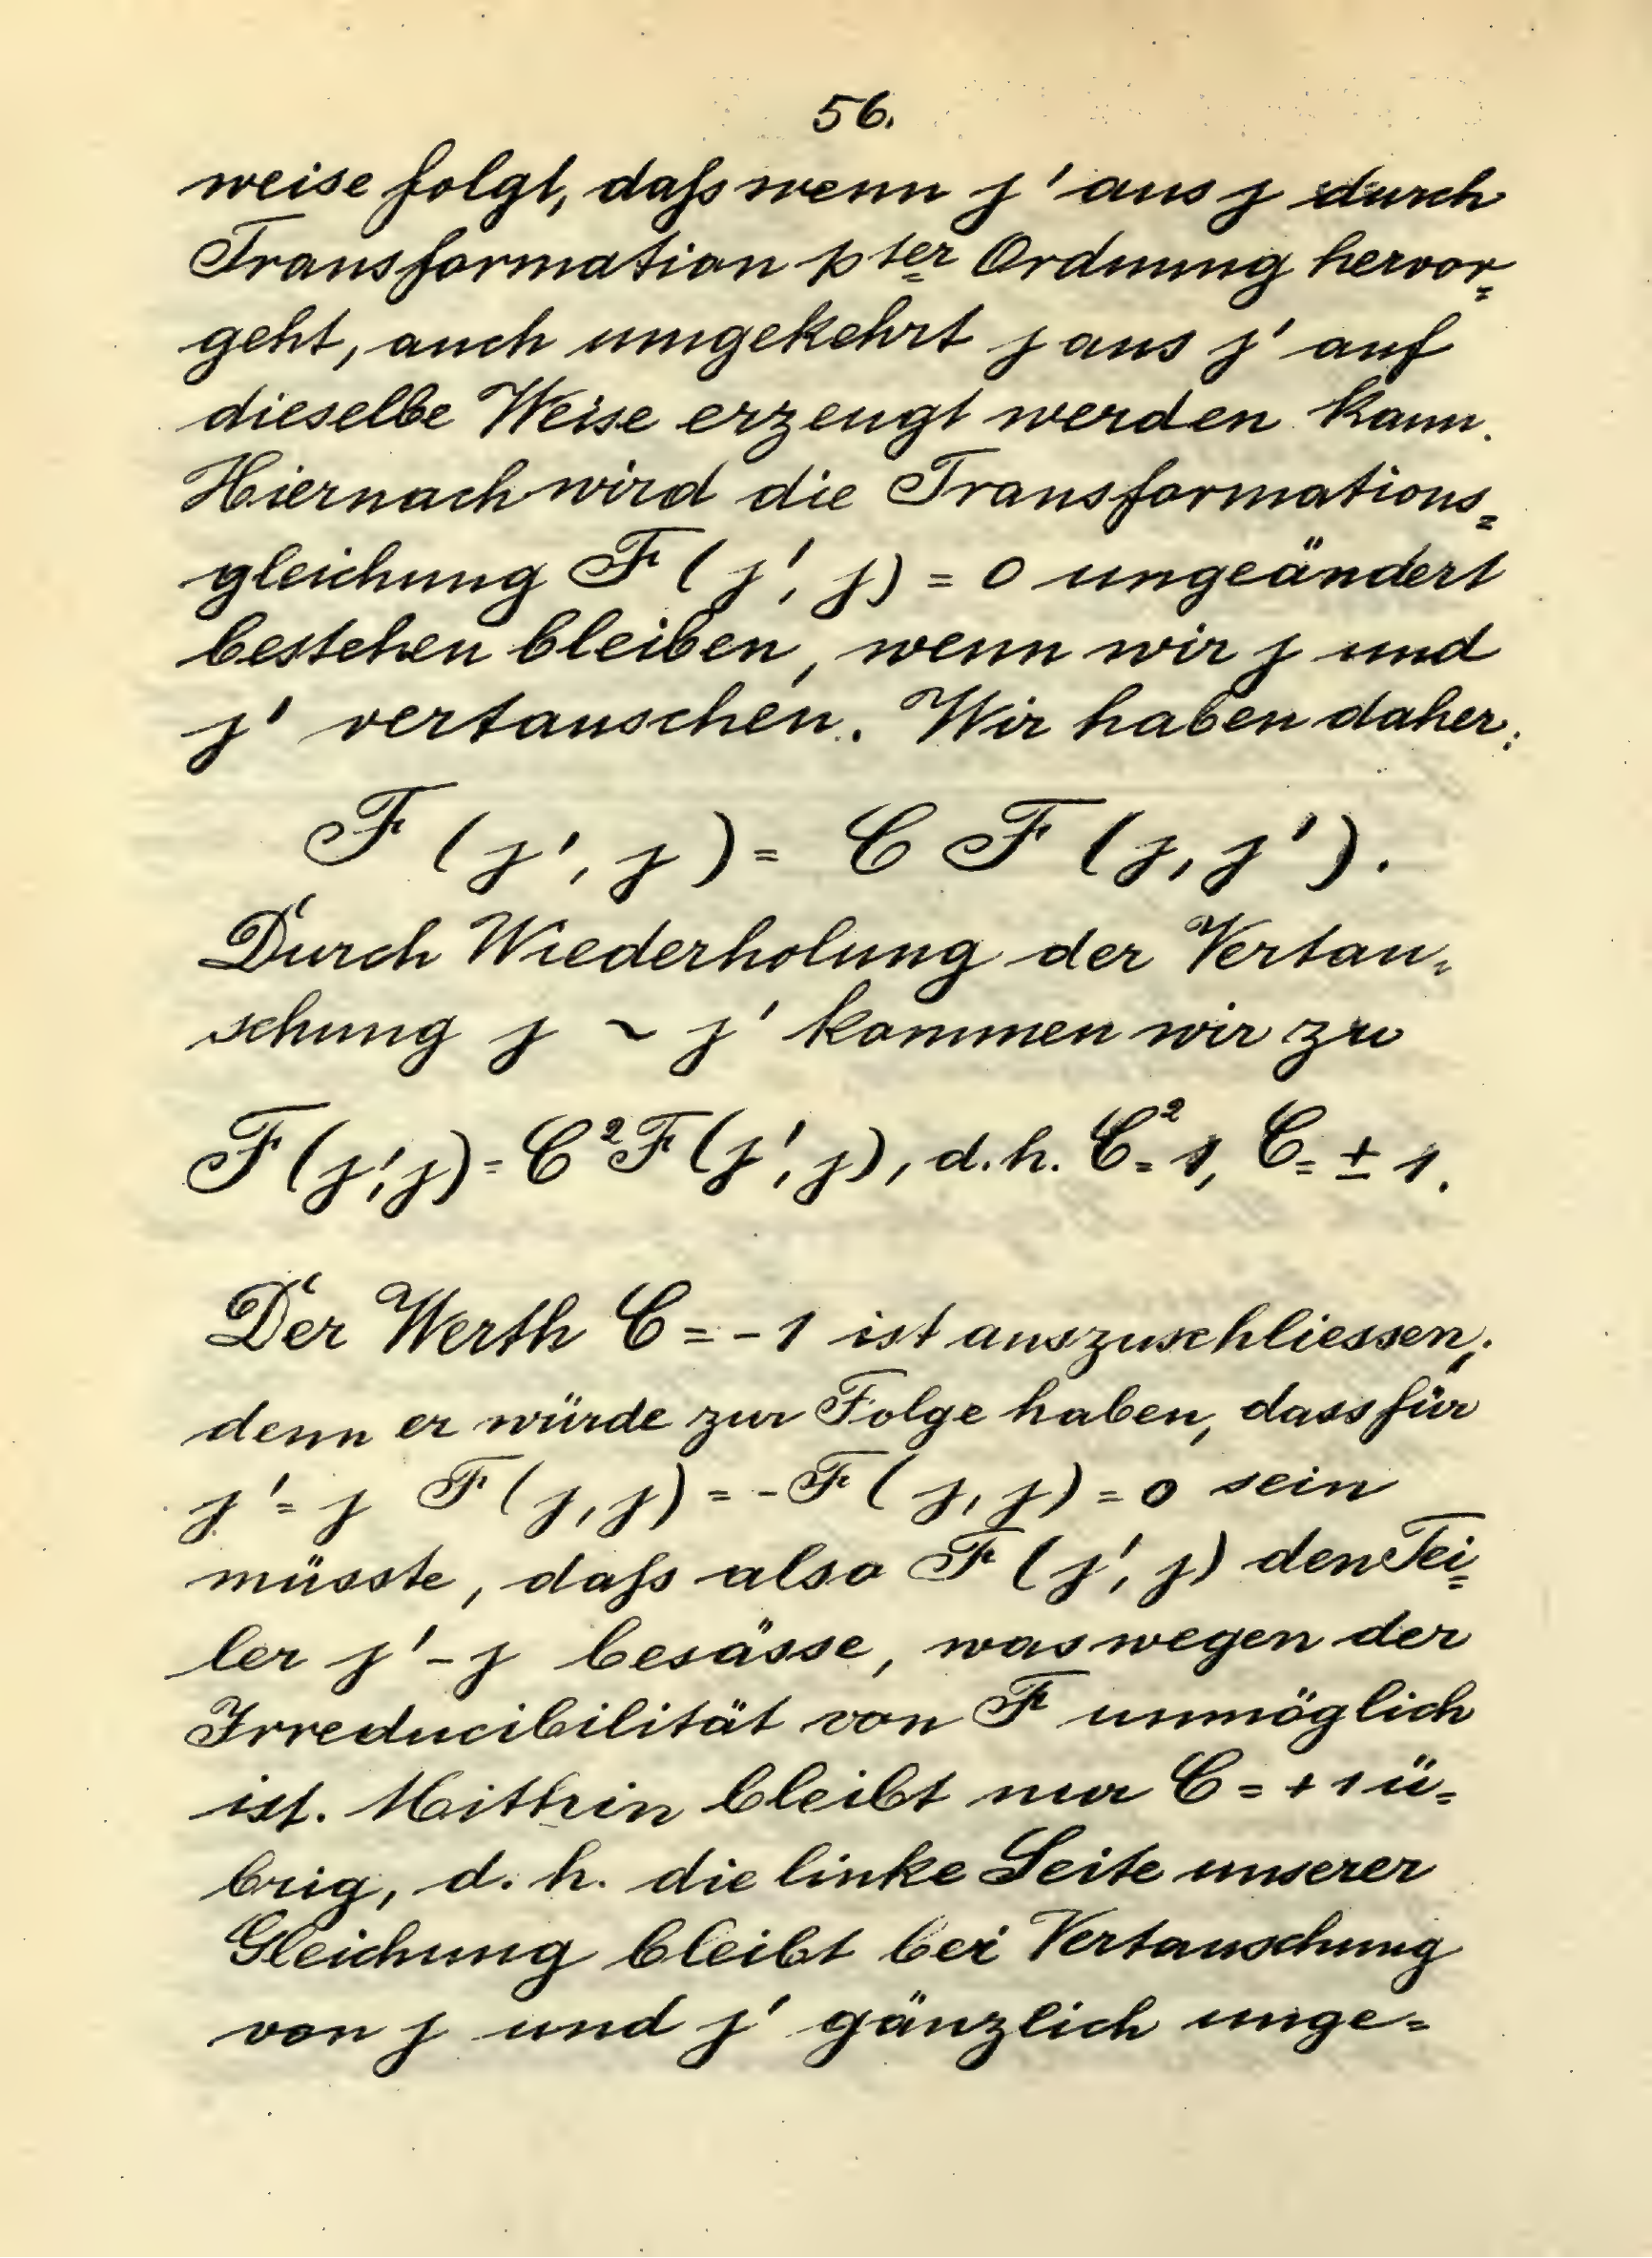 56.
weise folgt, daſs wenn j' aus j durch
Transformation pter Ordnung hervor=
geht, auch umgekehrt j aus j' auf
dieselbe Weise erzeugt werden kann.
Hiernach wird die Transformations=
gleichung F (j', j) = 0 ungeändert
bestehen bleiben, wenn wir j und
j' vertauschen. Wir haben daher:
F (j', j) = C F (j, j').
Durch Wiederholung der Vertau=
schung j ~ j' kommen wir zu
F(j',j) = C²F(j',j), d.h. C²=1, C=±1.
Der Werth C = -1 ist auszuschliessen;
denn er würde zur Folge haben, dass für
j'=j F(j,j) = -F(j,j) = 0 sein
müsste, daſs also F (j', j) den Tei=
ler j'-j besässe, was wegen der
Irreducibilität von F unmöglich
ist. Mithin bleibt nur C = +1 ü=
brig, d. h. die linke Seite unserer
Gleichung bleibt bei Vertauschung
von j und j' gänzlich unge=